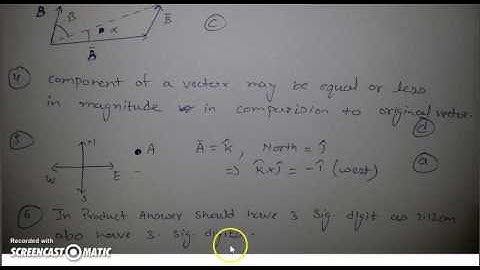 B B B̄
α
B̄ (c)
(4) component of a vector may be equal or less
in magnitude in comparision to original vector.
(d)
(5) N • A Ā = k̂, North = ĵ (a)
W E ⇒ k̂ × ĵ = -î (west)
S
(6) In Product Answer should have 3 sig. digit as 2.12cm
also have 3 sig. digits.
Recorded with
SCREENCAST-O-MATIC